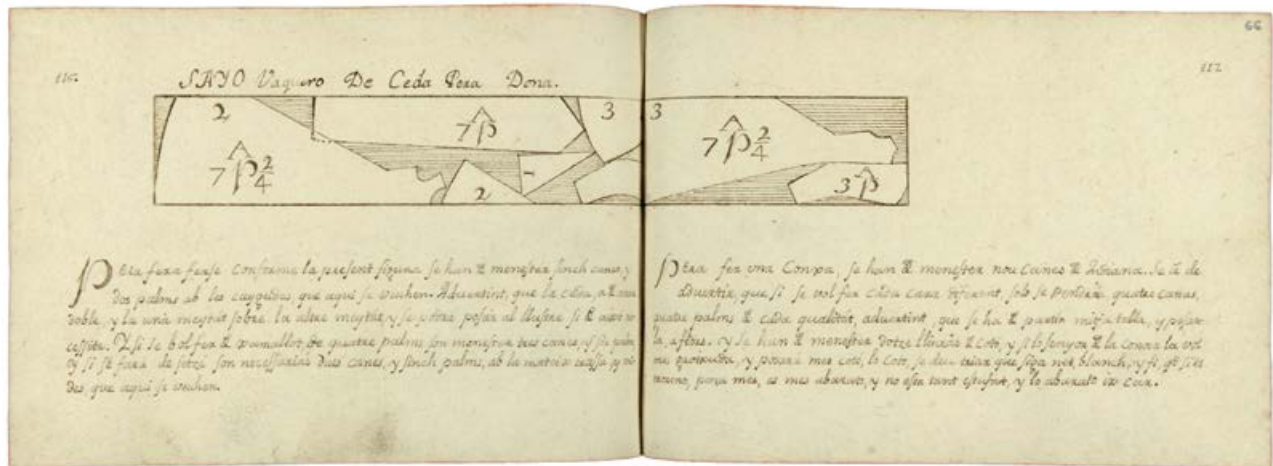 116.
SAYO Vaquero De Ceda Pera Dona.
2
7 P 2/4
7 P
2
3
Pera fer a ferse conforme la present figura se han de menester sinch canes, y
dos palms ab les caygudes, que aqui se veuhen. Advertint, que la ceda,
doble, y la una meytat sobre la altre meytat, y se potra posar al llustre si
cessita. Y si se vol fer de xamallot, de quatre palms son menester tres canes, y
y si se fara de setze son necessaries dues canes, y sinch palms, ab la mateixa
des, que aqui se veuhen.
66
117.
3
7 P 2/4
3 P
Pera fer una Conxa, se han de menester nou canes de Indiana. Se ha de
advertir, que si se vol fer cada cara diferent, solo se pendran, quatre canes,
quatre palms de cada qualitat, advertint, que se ha de partir mitja tella, y posar
la, altres. Y se han de menester dotze lliures de cotó, y si lo senyor de la Conxa la vol
mes y posará mes cotó, lo cotó, se deu triar que sipia net, blanch, y fi,
moreno, pesa mes, es mes abarato, y no esta tant estufat, y lo abarato ix car.